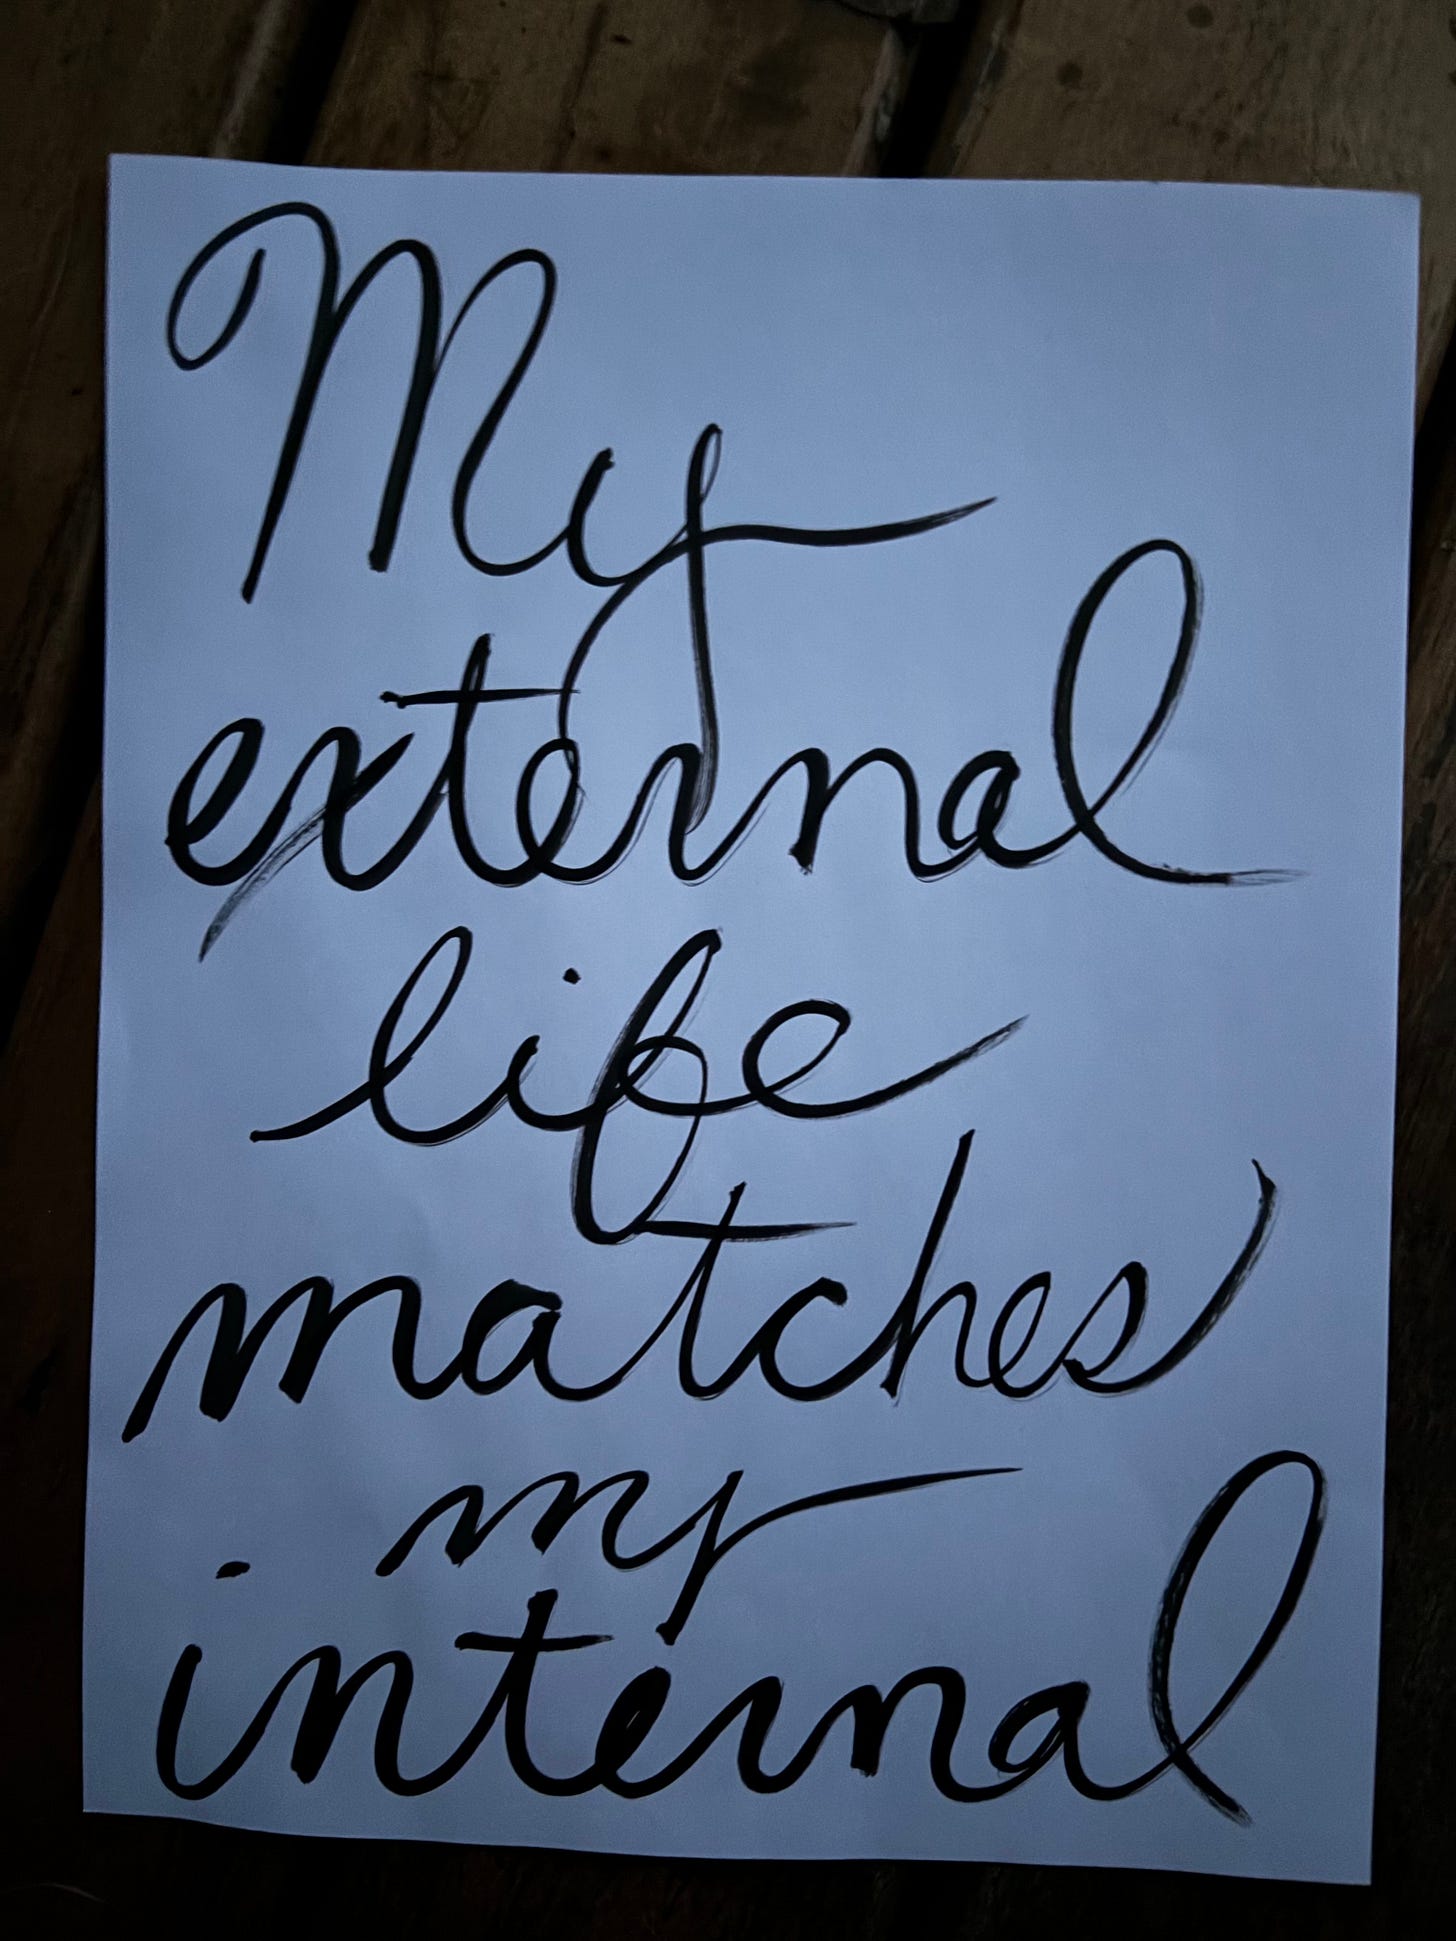 My
external
life
matches
my
internal